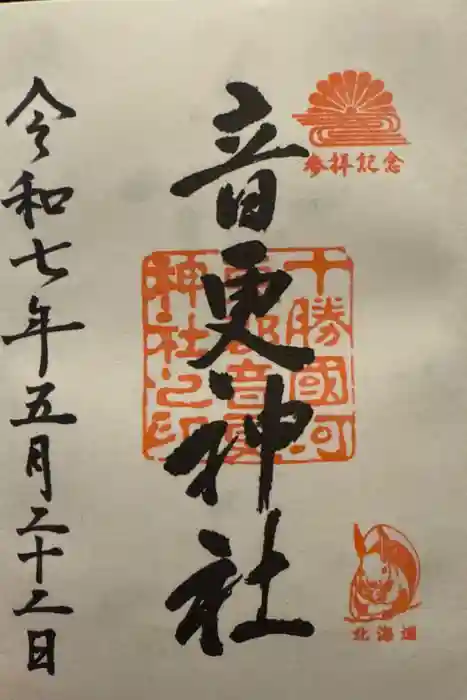 參拝記念
音更神社
十勝國河
東郡音更
神社之印
北海道
令和七年五月二十二日